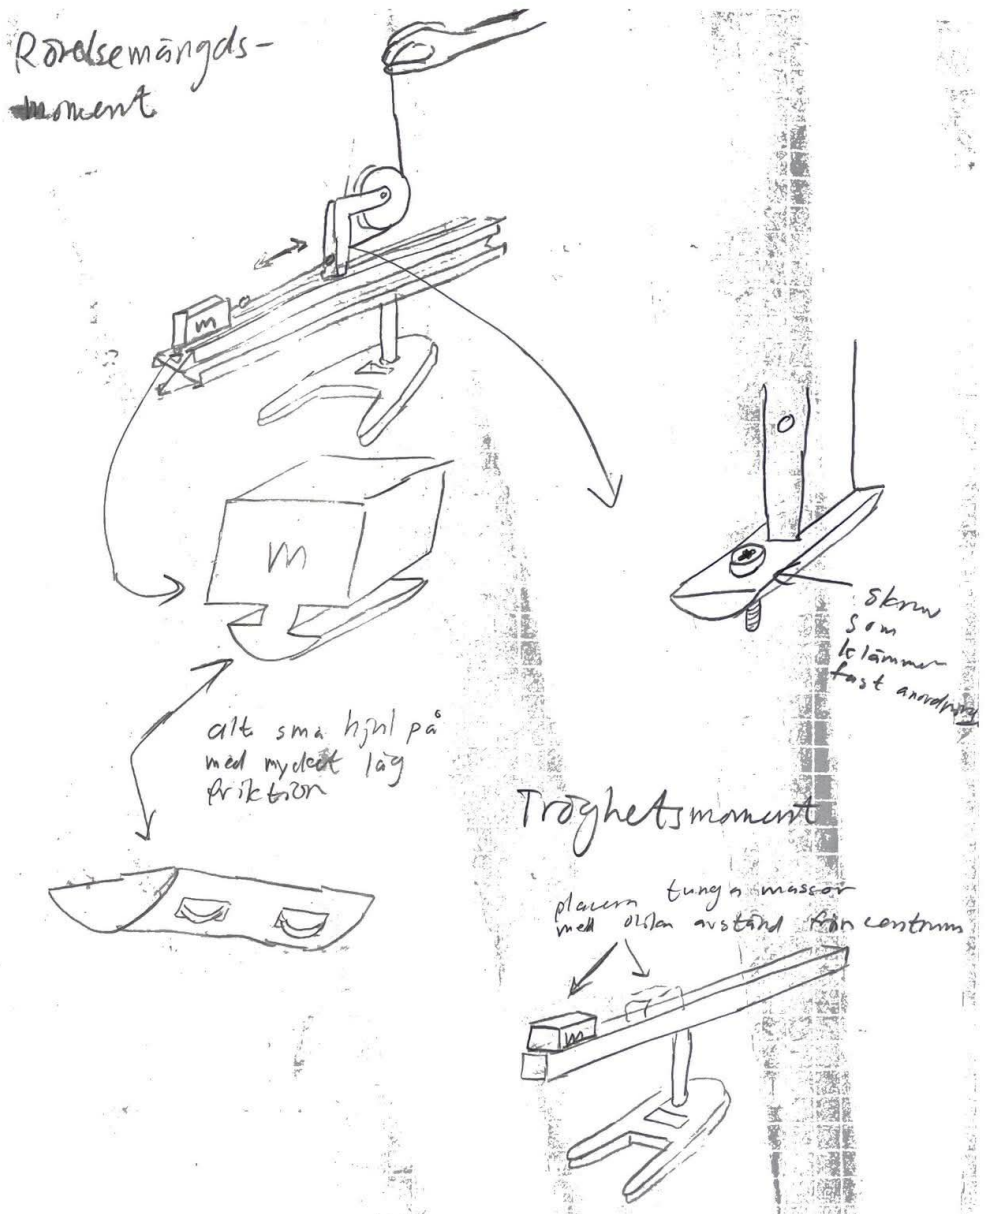 Rörelsemängds-
moment
m
m
skruv
som
klämmer
fast anordning
alt små hjul på
med mycket låg
friktion
Tröghetsmoment
placera tunga massor
med olika avstånd från centrum
m